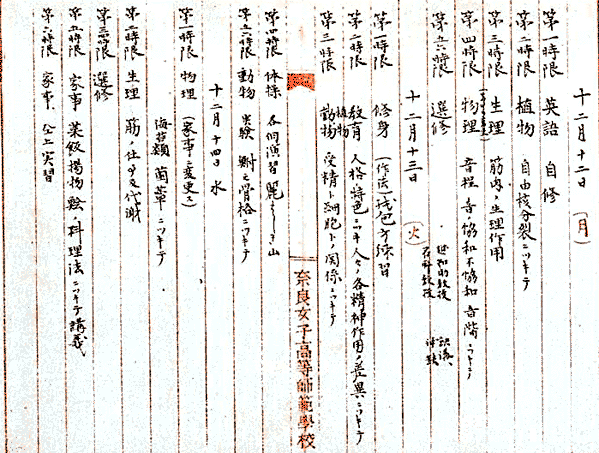 十二月十二日 (月)
第一時限 英語 自修
第二時限 植物 自由核分裂ニツキテ
第三時限 生理 筋肉ノ生理作用
第四時限 物理 音程 音ノ協和不協和 音階ニツキテ
第五六時限 選修
十二月十三日 (火)
第一時限 修身 (作法) 包方練習
第二時限 教育 人格ノ特色ニツキ人々ノ各精神作用ノ差異ニツキテ
第三時限 植物 動物 受精ト細胞トノ関係ニツキテ
奈良女子高等師範學校
第四時限 体操 各個演習
第五六時限 動物 実験 骨格ニツキテ
十二月十四日 水
第一時限 物理 (家事ニ変更ス)
海藻類 菌草ニツキテ
第二時限 生理 筋ノ仕事及代謝
第三四時限 選修
第五時限 家事 菜飯揚物 料理法ニツキテ講義
第六時限 家事 仝上実習